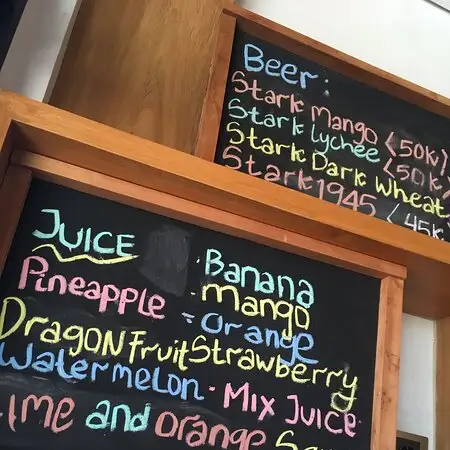 Beer:
Stark Mango (50K)
Stark Lychee (50K)
Stark Dark Wheat
Stark 1945 (45K
JUICE · Banana
Pineapple · Mango
- Orange
Dragon Fruit Strawberry
Watermelon · Mix Juice
Lime and orange